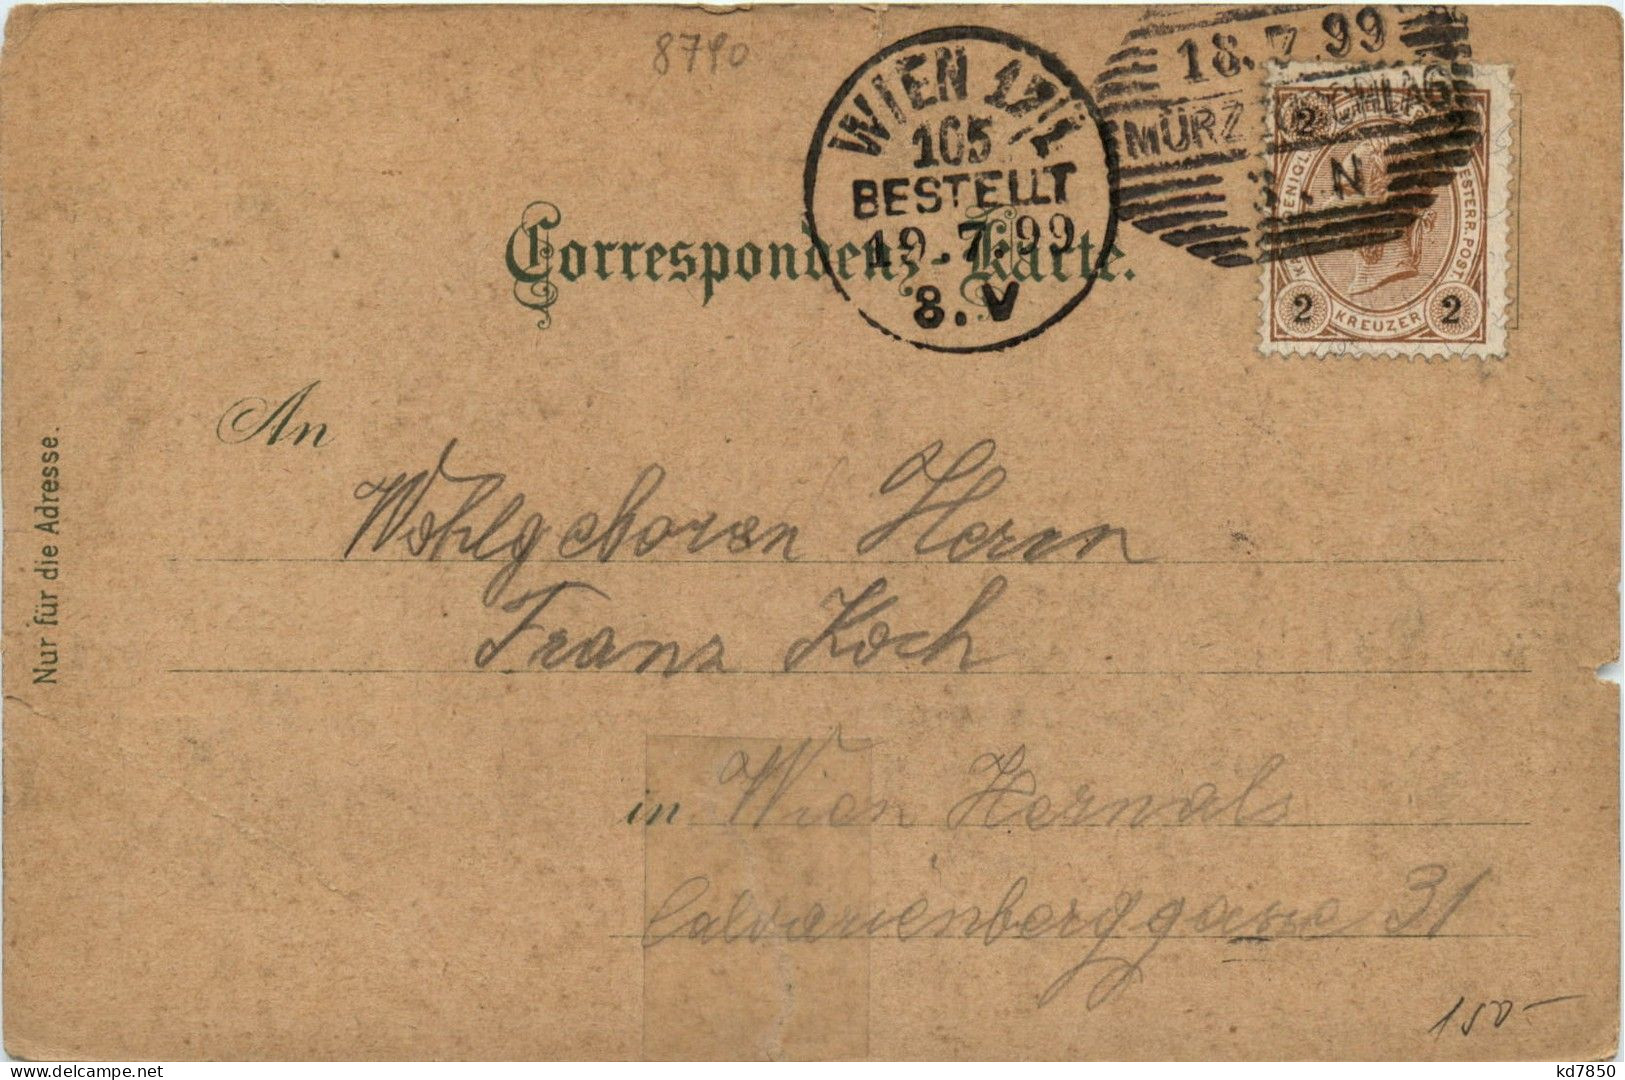 8790
18.7.99
MÜRZZUSCHLAG
N
WIEN 17/1
105
BESTELLT
19.7.99
8.V
2
2 KREUZER 2
Correspondenz-Karte.
An
Wohlgeboren Herrn
Franz Koch
in Wien Hernals
Calvarienberggasse 31
Nur für die Adresse.
150-
kd7850